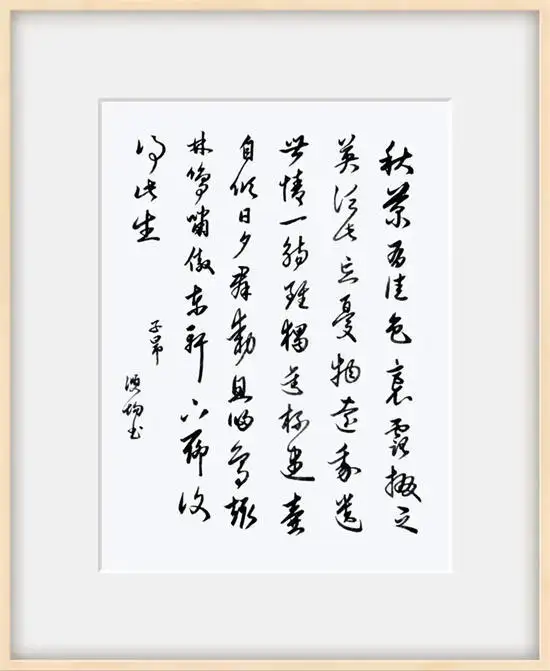 秋菊有佳色裛露掇其
英泛此忘憂物遠我遺
世情一觴雖獨進杯盡壺
自傾日夕群動息歸鳥趨
林鳴嘯傲東軒下聊復
得此生
子昂
书